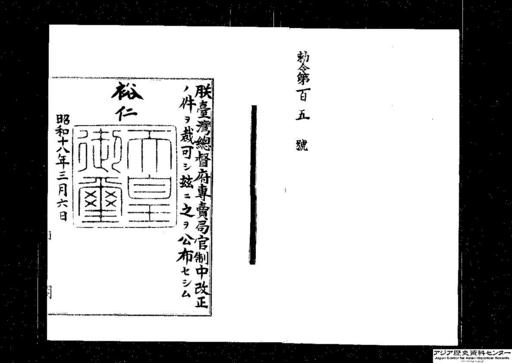 勅令第百五號
朕臺灣總督府專賣局官制中改正
ノ件ヲ裁可シ玆ニ之ヲ公布セシム
裕仁
天皇御璽
昭和十八年三月六日
アジア歴史資料センター
Japan Center for Asian Historical Records